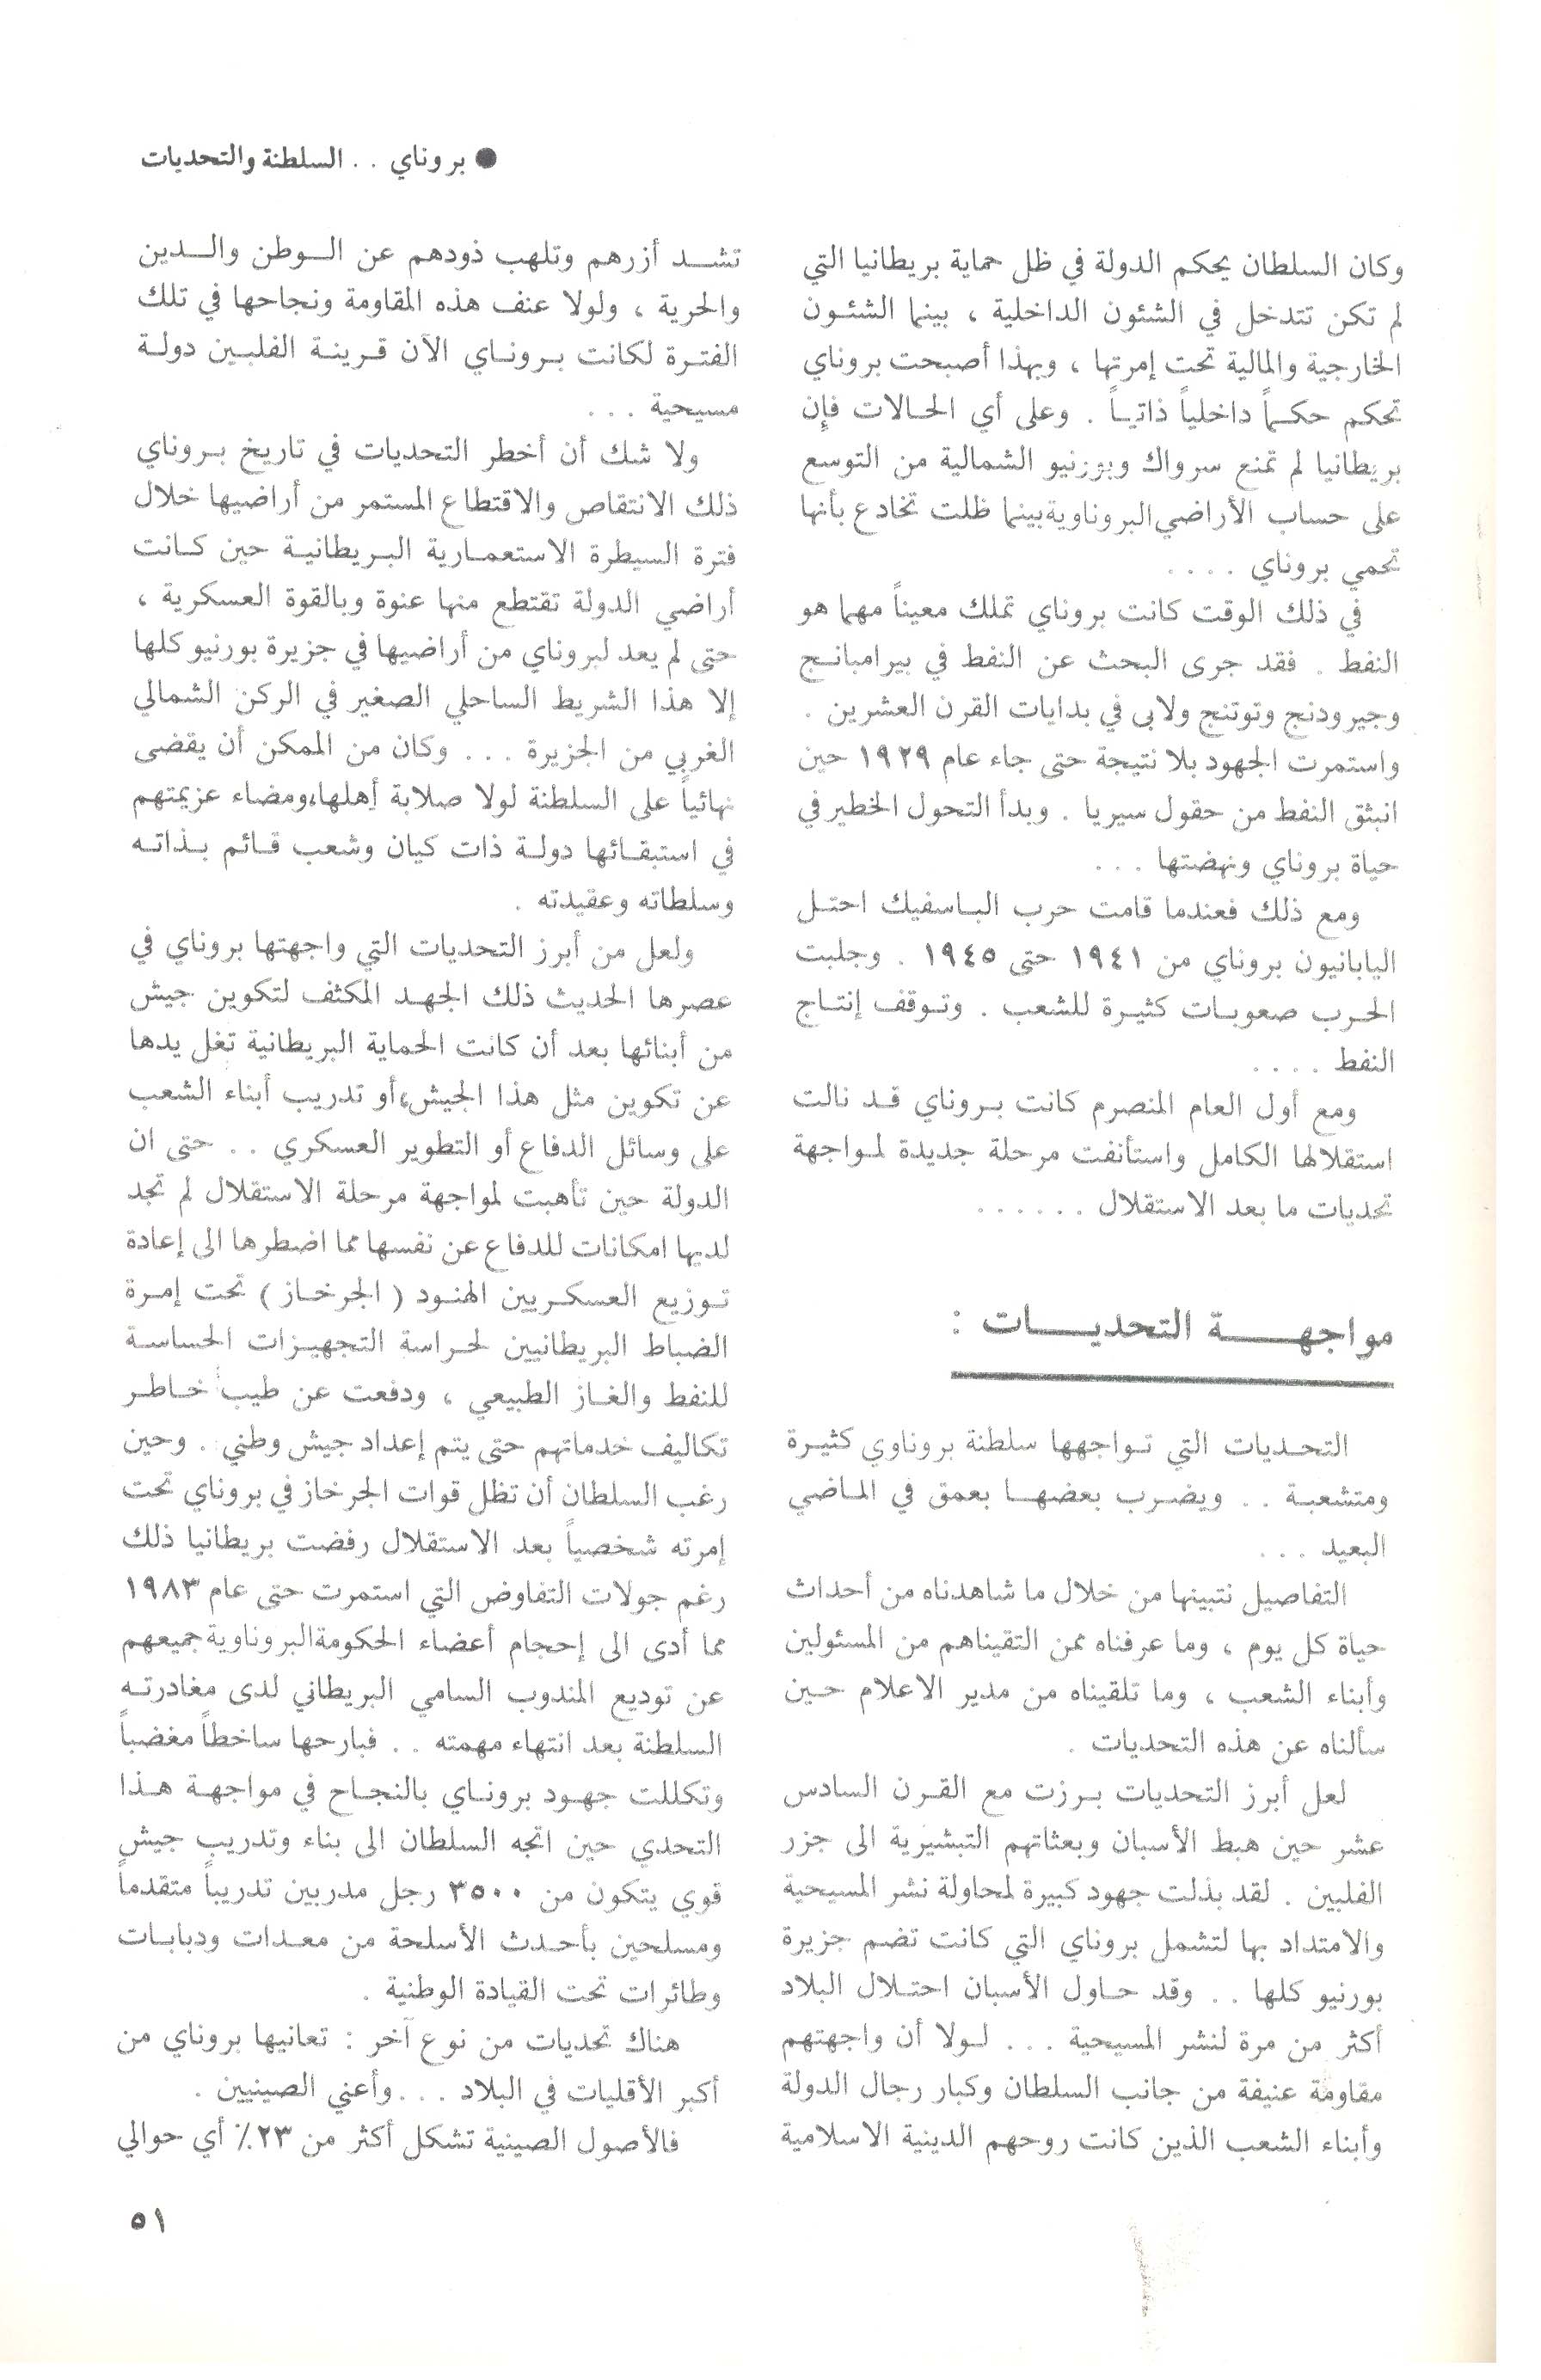 ● بروناي . . السلطنة والتحديات
وكان السلطان يحكم الدولة في ظل حماية بريطانيا التي
لم تكن تتدخل في الشئون الداخلية ، بينما الشئون
الخارجية والمالية تحت إمرتها ، وبهذا أصبحت بروناي
تحكم حكماً داخلياً ذاتياً . وعلى أي الحالات فإن
بريطانيا لم تمنع سرواك وبورنيو الشمالية من التوسع
على حساب الأراضي البروناوية بينما ظلت تخادع بأنها
تحمي بروناي . . . .
في ذلك الوقت كانت بروناي تملك معيناً مهما هو
النفط . فقد جرى البحث عن النفط في بيرامبانج
وجيرودنج وتوتنج ولابى في بدايات القرن العشرين .
واستمرت الجهود بلا نتيجة حتى جاء عام ١٩٢٩ حين
انبثق النفط من حقول سيريا . وبدأ التحول الخطير في
حياة بروناي ونهضتها . . .
ومع ذلك فعندما قامت حرب الباسفيك احتل
اليابانيون بروناي من ١٩٤١ حتى ١٩٤٥ . وجلبت
الحرب صعوبات كثيرة للشعب . وتوقف إنتاج
النفط . . . .
ومع أول العام المنصرم كانت بروناي قد نالت
استقلالها الكامل واستأنفت مرحلة جديدة لمواجهة
تحديات ما بعد الاستقلال . . . . . .
مواجهة التحديات :
التحديات التي تواجهها سلطنة بروناوي كثيرة
ومتشعبة . . ويضرب بعضها بعمق في الماضي
البعيد . . .
التفاصيل نتبينها من خلال ما شاهدناه من أحداث
حياة كل يوم ، وما عرفناه ممن التقيناهم من المسئولين
وأبناء الشعب ، وما تلقيناه من مدير الاعلام حين
سألناه عن هذه التحديات .
لعل أبرز التحديات برزت مع القرن السادس
عشر حين هبط الأسبان وبعثاتهم التبشيرية الى جزر
الفلبين . لقد بذلت جهود كبيرة لمحاولة نشر المسيحية
والامتداد بها لتشمل بروناي التي كانت تضم جزيرة
بورنيو كلها . . وقد حاول الأسبان احتلال البلاد
أكثر من مرة لنشر المسيحية . . . لولا أن واجهتهم
مقاومة عنيفة من جانب السلطان وكبار رجال الدولة
وأبناء الشعب الذين كانت روحهم الدينية الاسلامية
تشد أزرهم وتلهب ذودهم عن الوطن والدين
والحرية ، ولولا عنف هذه المقاومة ونجاحها في تلك
الفترة لكانت بروناي الآن قرينة الفلبين دولة
مسيحية . . .
ولا شك أن أخطر التحديات في تاريخ بروناي
ذلك الانتقاص والاقتطاع المستمر من أراضيها خلال
فترة السيطرة الاستعمارية البريطانية حين كانت
أراضي الدولة تقتطع منها عنوة وبالقوة العسكرية ،
حتى لم يعد لبروناي من أراضيها في جزيرة بورنيو كلها
إلا هذا الشريط الساحلي الصغير في الركن الشمالي
الغربي من الجزيرة . . . وكان من الممكن أن يقضى
نهائياً على السلطنة لولا صلابة أهلها، ومضاء عزيمتهم
في استبقائها دولة ذات كيان وشعب قائم بذاته
وسلطاته وعقيدته .
ولعل من أبرز التحديات التي واجهتها بروناي في
عصرها الحديث ذلك الجهد المكثف لتكوين جيش
من أبنائها بعد أن كانت الحماية البريطانية تغل يدها
عن تكوين مثل هذا الجيش، أو تدريب أبناء الشعب
على وسائل الدفاع أو التطوير العسكري . . حتى ان
الدولة حين تأهبت لمواجهة مرحلة الاستقلال لم تجد
لديها امكانات للدفاع عن نفسها مما اضطرها الى إعادة
توزيع العسكريين الهنود ( الجرخاز ) تحت إمرة
الضباط البريطانيين لحراسة التجهيزات الحساسة
للنفط والغاز الطبيعي ، ودفعت عن طيب خاطر
تكاليف خدماتهم حتى يتم إعداد جيش وطني . وحين
رغب السلطان أن تظل قوات الجرخاز في بروناي تحت
إمرته شخصياً بعد الاستقلال رفضت بريطانيا ذلك
رغم جولات التفاوض التي استمرت حتى عام ١٩٨٣
مما أدى الى إحجام أعضاء الحكومة البروناوية جميعهم
عن توديع المندوب السامي البريطاني لدى مغادرته
السلطنة بعد انتهاء مهمته . . فبارحها ساخطاً مغضباً
وتكللت جهود بروناي بالنجاح في مواجهة هذا
التحدي حين اتجه السلطان الى بناء وتدريب جيش
قوي يتكون من ٣٥٠٠ رجل مدربين تدريباً متقدماً
ومسلحين بأحدث الأسلحة من معدات ودبابات
وطائرات تحت القيادة الوطنية .
هناك تحديات من نوع آخر : تعانيها بروناي من
أكبر الأقليات في البلاد . . . وأعني الصينيين .
فالأصول الصينية تشكل أكثر من ٢٣٪ أي حوالي
٥١